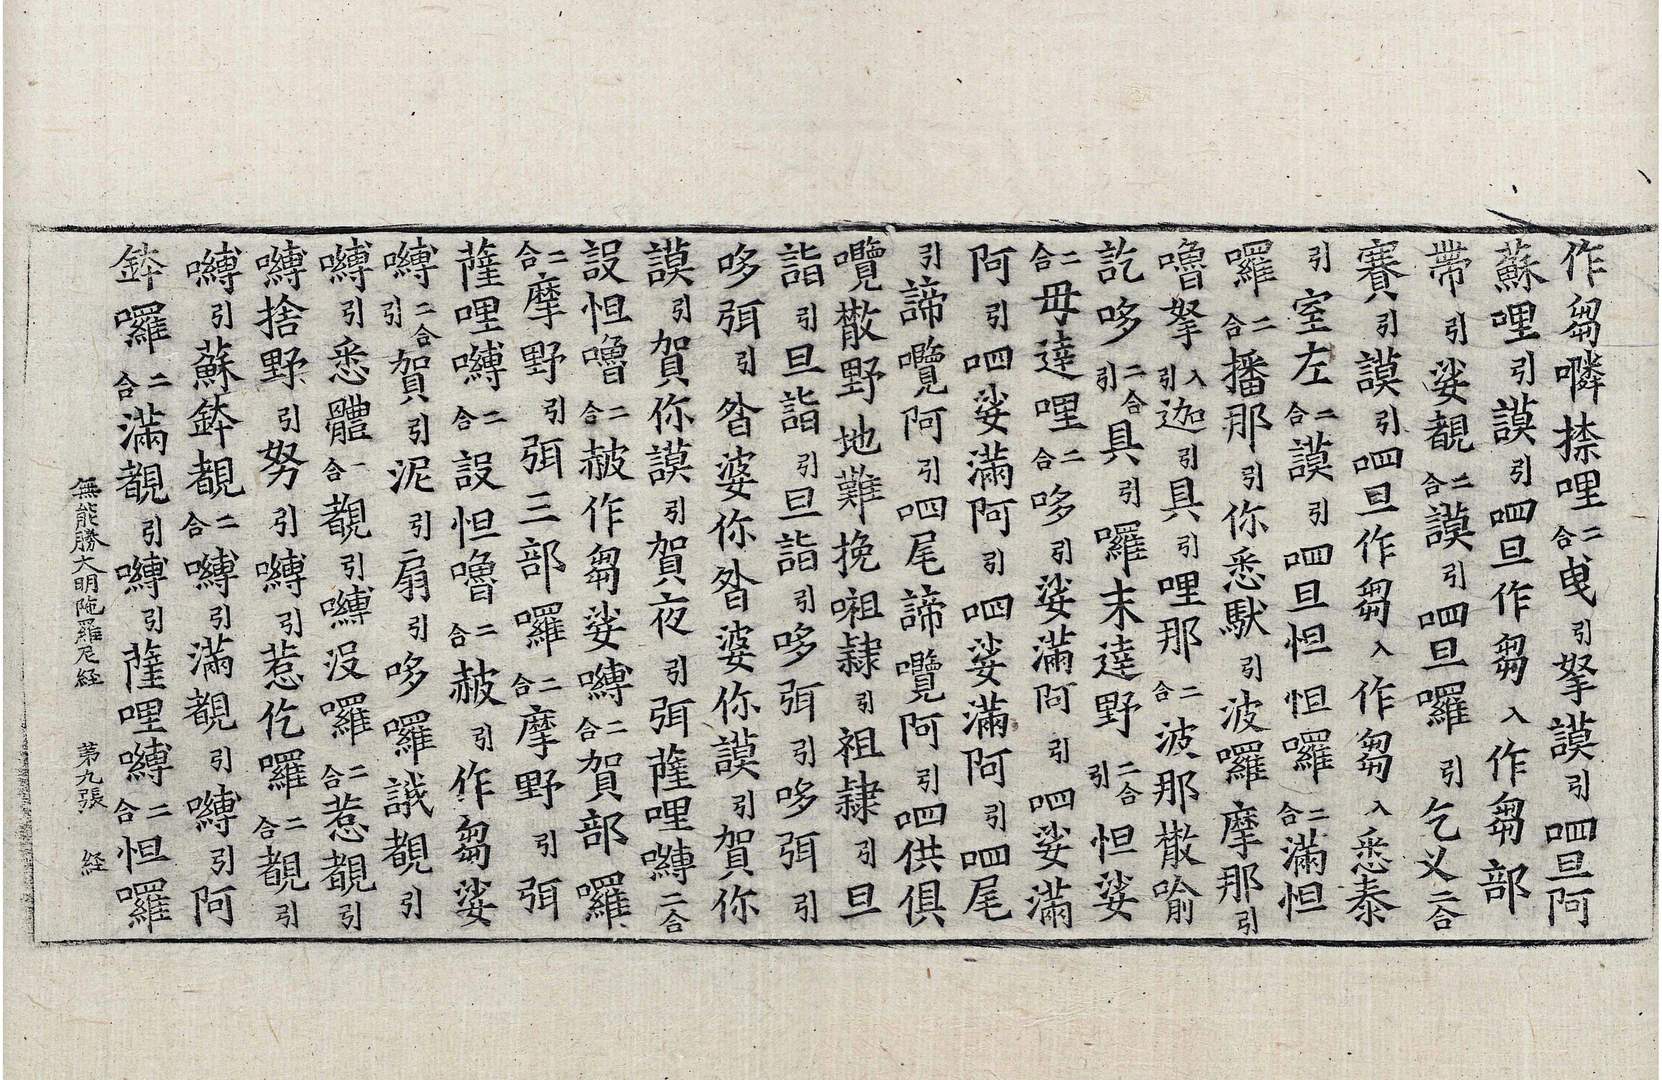 作芻㗚捺哩二合曵引拏謨引呬旦阿
蘇哩引謨引呬旦作芻入作芻部
帶引娑覩二合謨引呬旦囉引乞义二合
賽引謨引呬旦作芻入作芻入悉泰
引室左二合謨引呬旦怛囉二合滿怛
囉二合播那引你悉馱引波囉摩那引
嚕拏入引迦引具引哩那二合波那散喻
訖哆二合引具引囉末達野二合引怛娑
二合毋達哩二合哆引娑滿阿引呬娑滿
阿引呬娑滿阿引呬娑滿阿引呬尾
引諦囕阿引呬尾諦囕阿引呬供俱
囕散野地難挽㗇隷引祖隷引旦
詣引旦詣引旦詣引哆弭引哆弭引
哆弭引沓婆你沓婆你謨引賀你
謨引賀你謨引賀夜引弭薩哩嚩二合
設怛嚕二合赧作芻娑嚩二合賀部囉
二合摩野引弭三部囉二合摩野引弭
薩哩嚩二合設怛嚕二合赧引作芻娑
嚩二合引賀引泥引扇引哆囉誐覩引
嚩引悉體二合覩引嚩沒囉二合惹覩引
嚩捨野引努引嚩引惹仡囉二合覩引
嚩引蘇鉢覩二合嚩引滿覩引嚩引阿
鉢囉二合滿覩引嚩引薩哩嚩二合怛囉
無能勝大明陁羅尼経　第九張　経